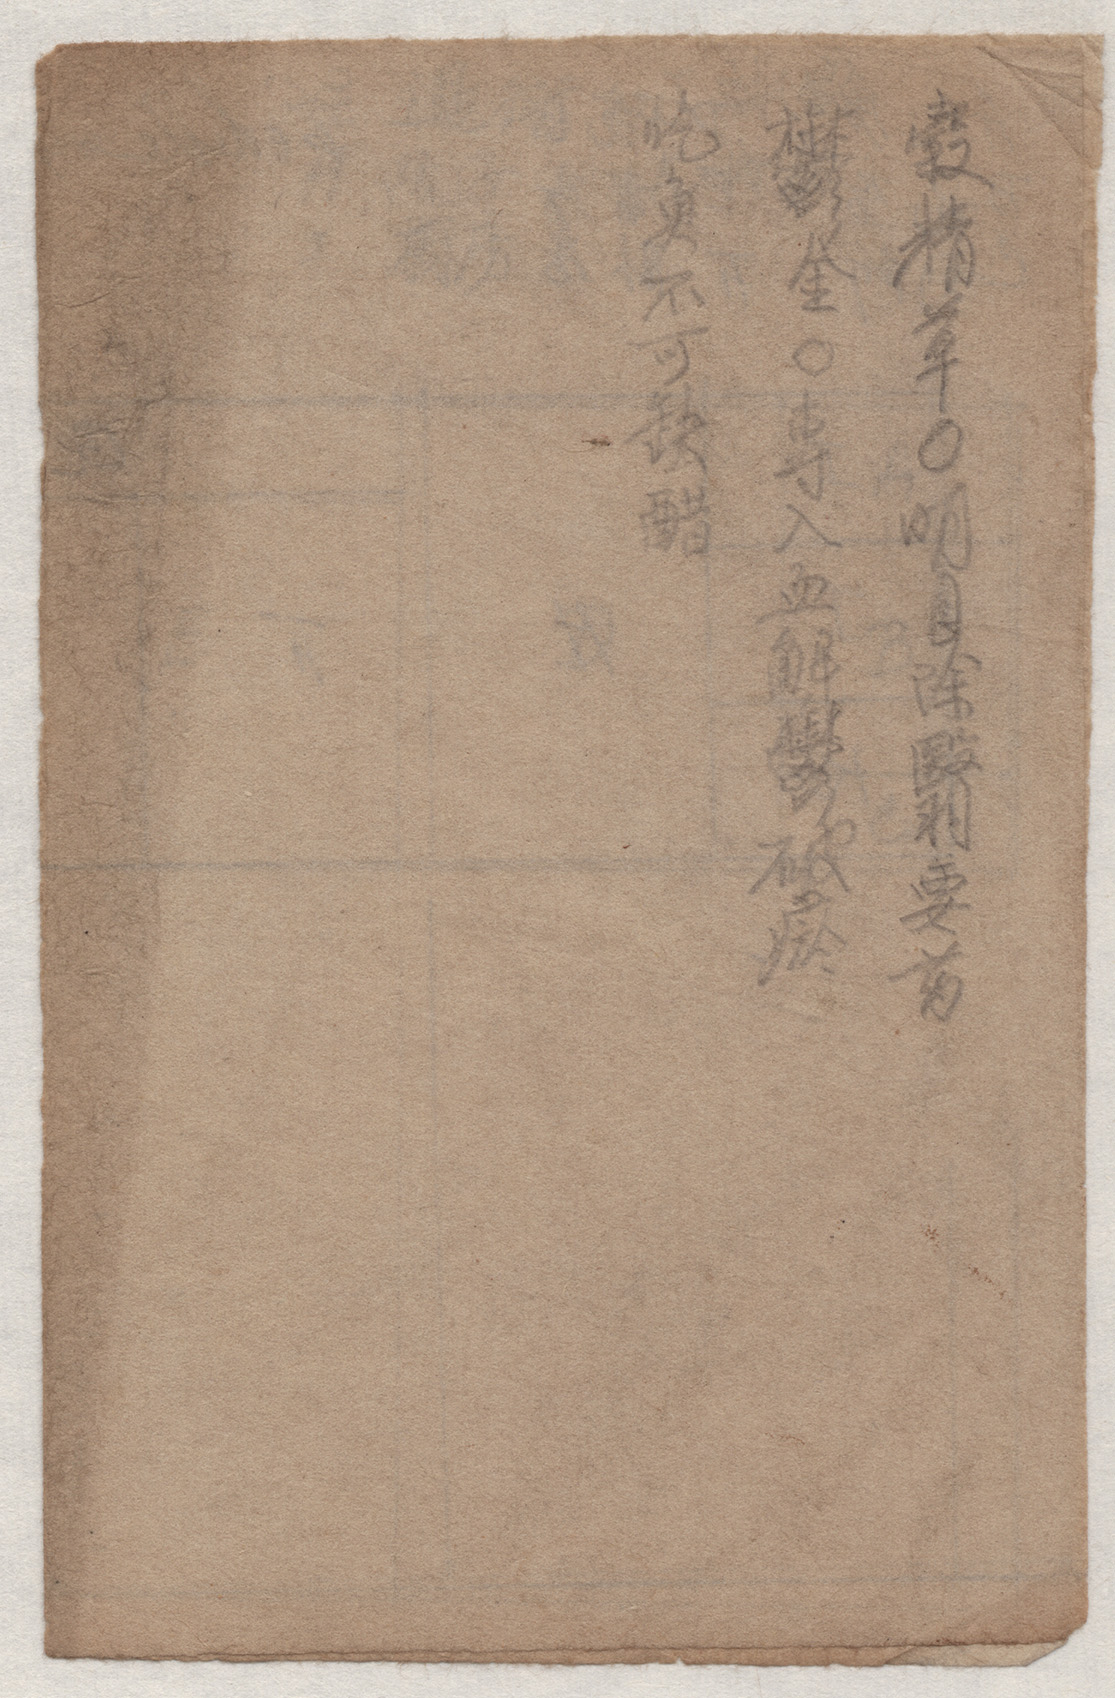 穀精草○明目除翳要药
鬱金○專入血解鬱破瘀
吃魚不可缺醋